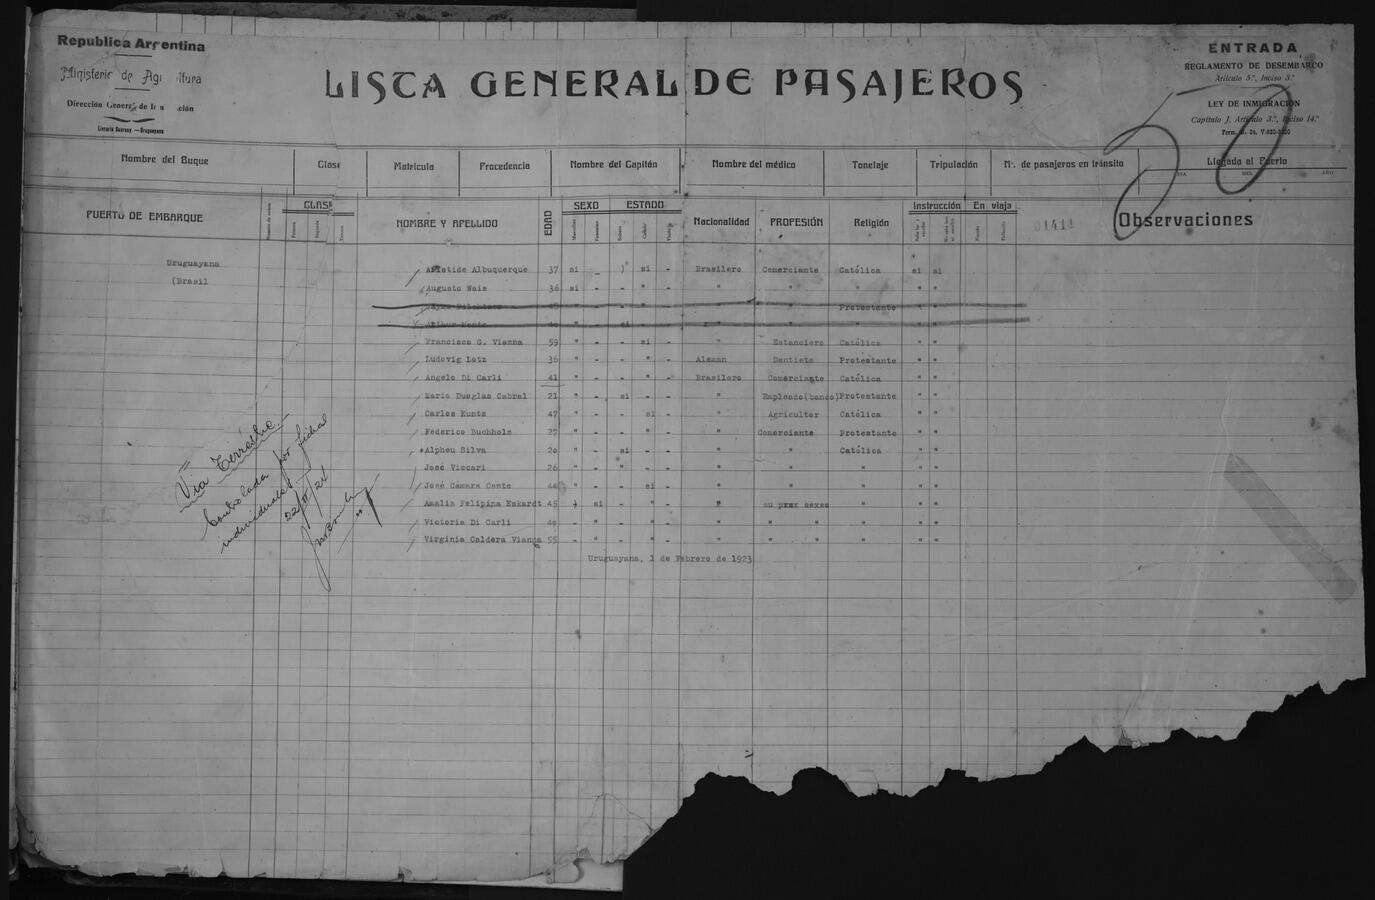 Republica Argentina
Ministerio de Ag ultura
Dirección General de In ción
Librería Guarany —Uruguayana
LISTA GENERAL DE PASAJEROS
ENTRADA
REGLAMENTO DE DESEMBARCO
Artículo 5º, Inciso 3º
LEY DE INMIGRACIÓN
Capítulo J, Artículo 3º, Inciso 14º
50
Nombre del Buque Clase Matricula Procedencia Nombre del Capitán Nombre del médico Tonelaje Tripulación Nº. de pasajeros en tránsito Llegada al Puerto
DIA MES AÑO
PUERTO DE EMBARQUE CLASE NOMBRE Y APELLIDO EDAD SEXO ESTADO Nacionalidad PROFESIÓN Religión Instrucción En viaje Observaciones
31411
Uruguayana
(Brasil
Aristide Albuquerque 37 si - si - Brasilero Comerciante Católica si si
Augusto Wais 36 si - - " - " " " " "
Protestante " "
" - si " " " "
Francisco G. Vianna 59 " - si - " Estanciero Católica " "
Ludovig Lotz 36 " - - " - Aleman Dentista Protestante " "
Angelo Di Carli 41 " - - " - Brasilero Comerciante Católica " "
Mario Dueglas Cabral 21 " - si - " Empleado(banco)Protestante " "
Carlos Kuntz 47 " - si - " Agricultor Católica " "
Federico Buchholz 27 " - - " - " Comerciante Protestante " "
Alpheu Silva 20 " - si - - " " Católica " "
José Viccari 26 " - " - - " " " " "
José Câmara Canto 44 " - si - " " " " "
Amalia Felipina Eskardt 45 - si " - " su prex sexso " " "
Victoria Di Carli 40 - " - " - " " " " " "
Virginia Caldera Vianna 55 - " - " - " " " " " "
Uruguayana, 1 de Febrero de 1923
Via Terrestre
Controlada por fichas
individuales